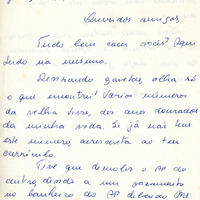 Queridos amigos,
Tudo bem com vocês? Aqui
tudo na mesma.
gavetas olha só
o que encontrei! Varios números
da velha Vivre, dos ano dourados
da minha vida. Se já não tem
este número acrescenta ao teu
currículo.
Tive que demolir o AP do
outro
no banheiro do AP debaixo. Me